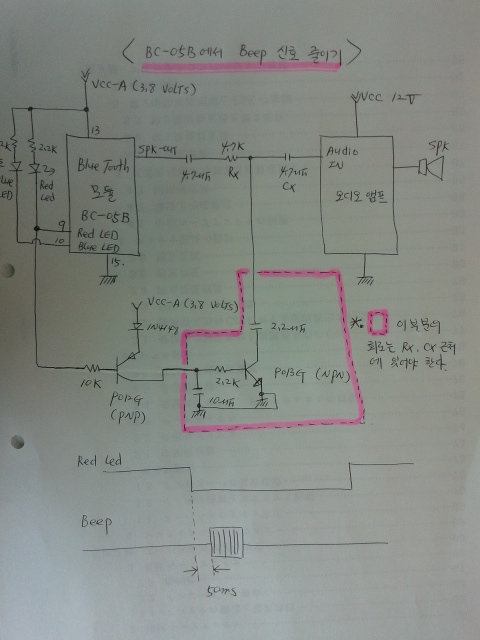 < BC-05B에서 Beep 신호 줄이기 >
VCC-A (3.8 VOLTS)
VCC 12V
13
SPK-OUT
4.7K
Rx
4.7uF
4.7uF
CX
Audio
IN
오디오 앰프
SPK
2.2K
Red
LED
LED
Blue Tooth
모듈
BC-05B
9
Red LED
10
Blue LED
15.
VCC-A (3.8 VOLTS)
1N4148
2.2uF
10K
2.2K
10uF
(PNP)
(NPN)
*. 이 부분의
회로는 Rx, CX 근처
에 있어야 한다.
Red Led
Beep
50ms